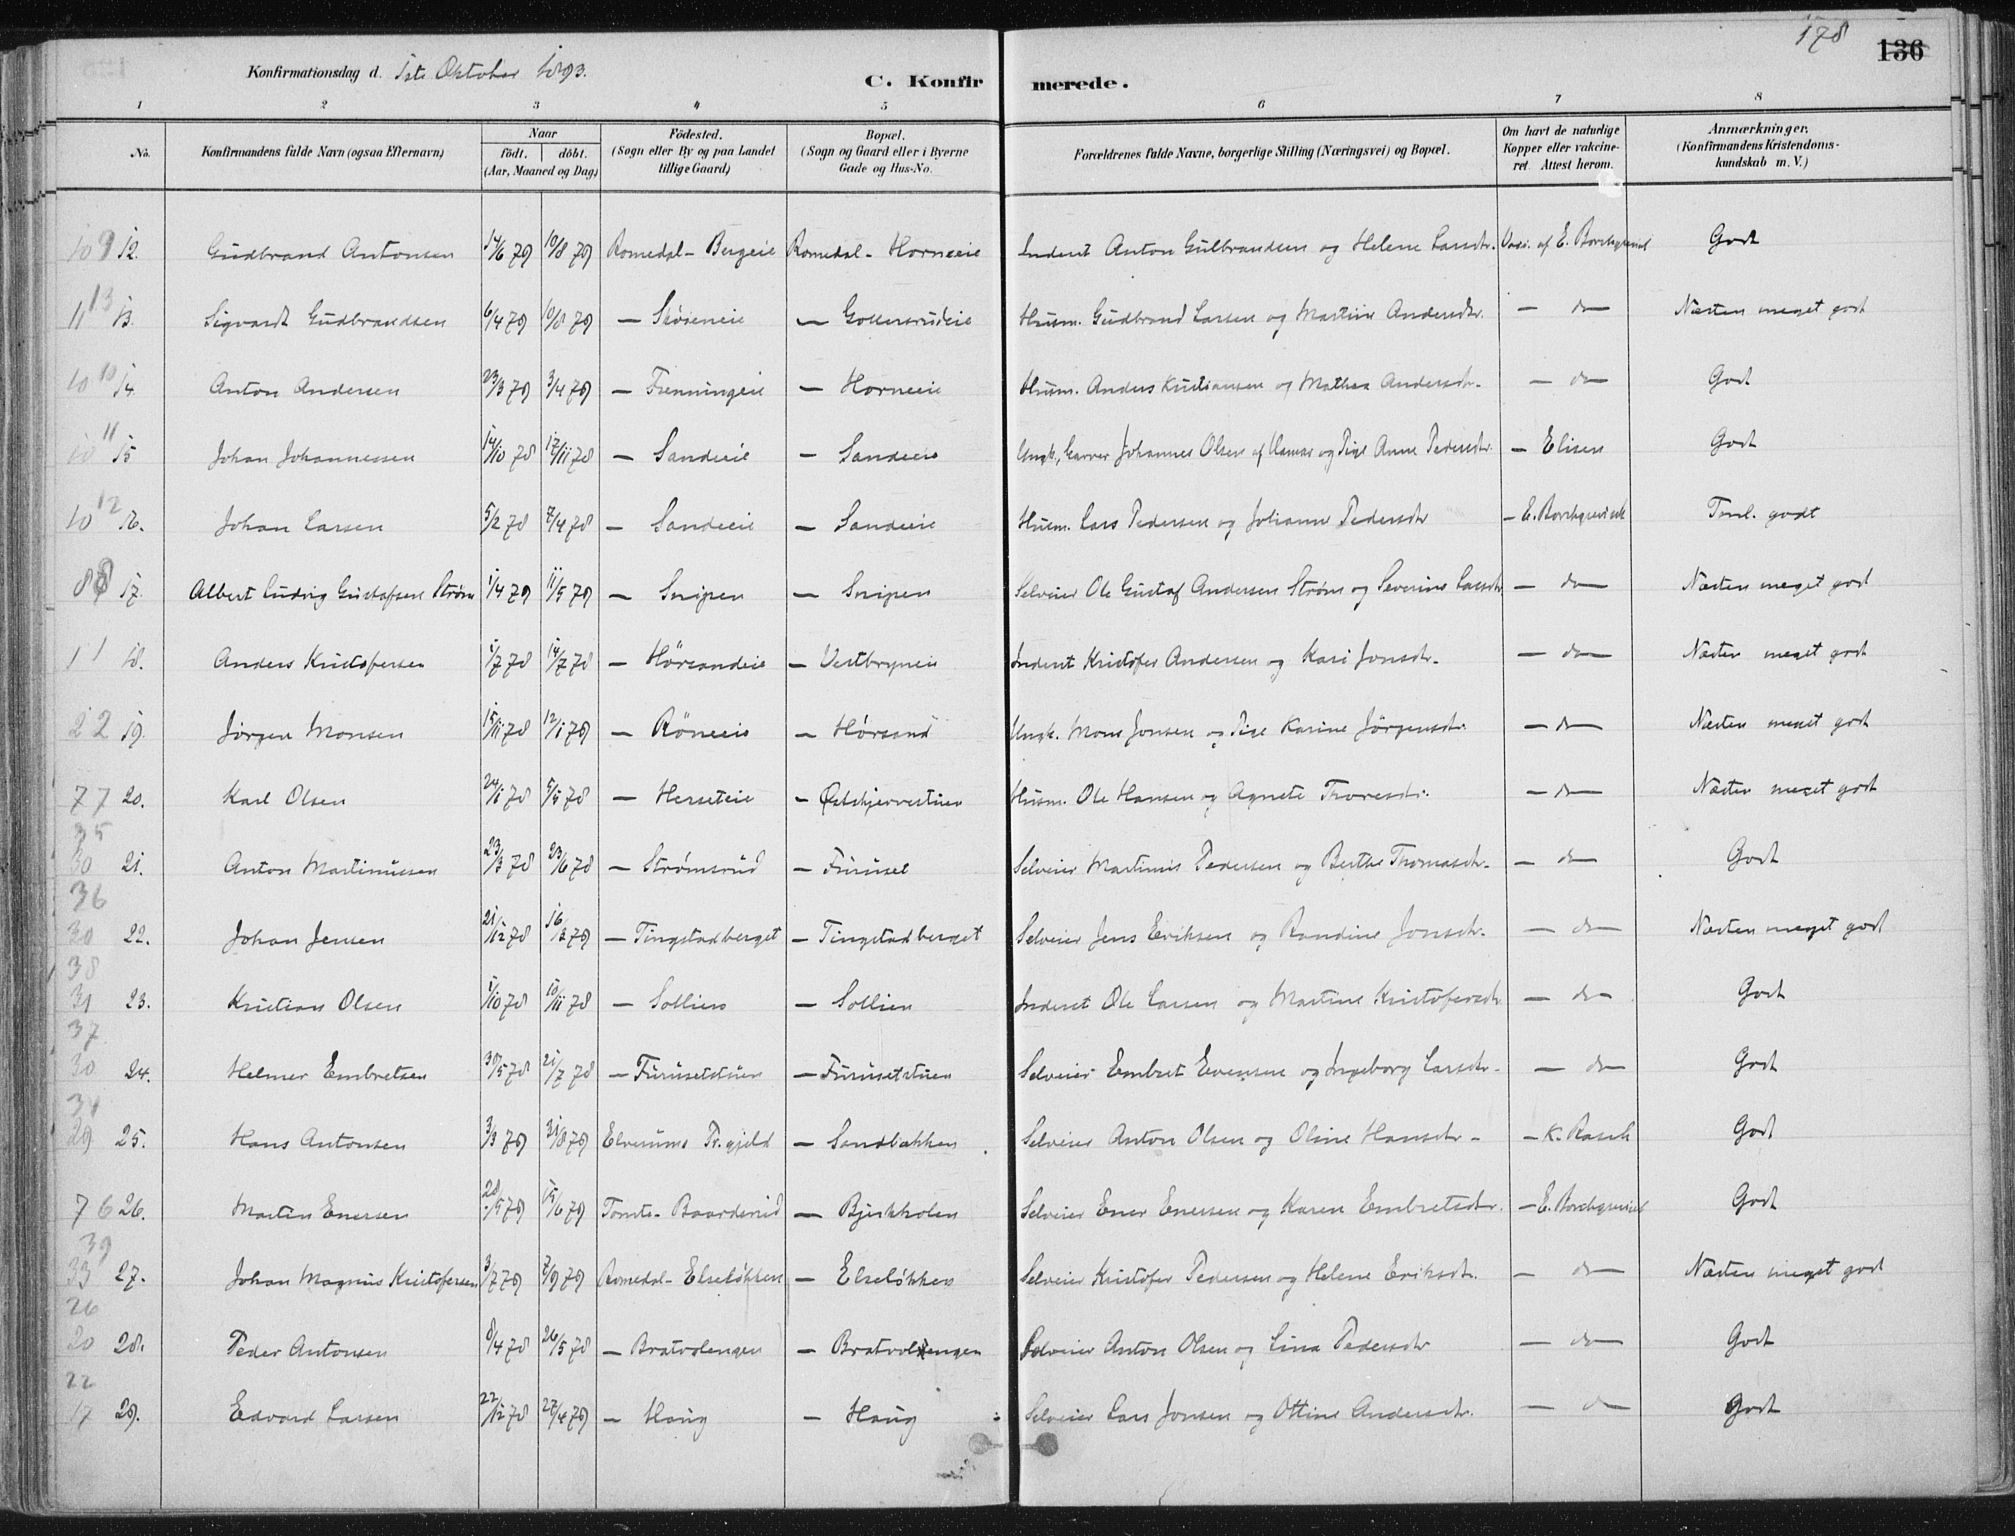 178
136
Konfirmationsdag d. 1ste Oktober 1893.
C. Konfirmerede.
1 2 3 4 5 6 7 8
No. Konfirmandens fulde Navn (ogsaa Efternavn) Naar födt. döbt. (Aar, Maaned og Dag) Födested. (Sogn eller By og paa Landet tillige Gaard) Bopæl. (Sogn og Gaard eller i Byerne Gade og Hus-No. Forældrenes fulde Navne, borgerlige Stilling (Næringsvei) og Bopæl. Om havt de naturlige Kopper eller vakcineret. Attest herom. Anmærkninger. (Konfirmandens Kristendomskundskab m. V.)
12. Gudbrand Antonsen 14/6 79 10/8 79 Romedal - Bergeie Romedal - Horneeie Inderst Anton Gulbrandsen og Helene Larsdtr. Vacc. af E. Borchgrevink Godt
13. Sigvardt Gudbrandsen 6/4 79 10/8 79 — Skøieneie — Gollersrudeie Husm. Gudbrand Larsen og Martine Andersdtr. — do — Næsten meget godt
14. Anton Andersen 23/3 79 3/4 79 — Frenningeie — Horneeie Husm. Anders Kristiansen og Mathea Andersdtr. — do — Godt
15 Johan Johannessen 14/10 78 17/11 78 — Sandeeie — Sandeeie Ungk., Garver Johannes Olsen af Hamar og Pige Anne Pedersdtr. — Elisen Godt
16. Johan Larsen 5/2 78 7/4 78 — Sandeeie — Sandeeie Husm. Lars Pedersen og Johanne Pedersdtr — E. Borchgrevink Tml. godt
17. Albert Ludvig Gustafsen Strøm 1/4 79 11/5 79 — Snipen — Snipen Selveier Ole Gustaf Andersen Strøm og Severine Larsdtr — do — Næsten meget godt
18. Anders Kristofersen 1/7 78 14/7 78 — Hörsandeie — Vestbryneie Inderst Kristofer Andersen og Kari Jonsdtr. — do — Næsten meget godt
19. Jörgen Monsen 15/11 78 12/1 79 — Röneeie — Hörsand Ungk. Mons Jonsen og Pige Karine Jörgensdtr. — do — Næsten meget godt
20. Karl Olsen 24/1 78 5/4 78 — Herseteie — Østskjervestuen Husm. Ole Hansen og Agnete Thoresdtr. — do — Næsten meget godt
21. Anton Martinussen 23/3 78 23/6 78 — Strømsrud — Furuset Selveier Martinus Pedersen og Berthe Thomasdtr. — do — Godt
22. Johan Jensen 21/12 78 16/2 79 — Tingstadberget — Tingstadberget Selveier Jens Eriksen og Randine Jonsdtr. — do — Næsten meget godt
23. Kristian Olsen 1/10 78 10/11 78 — Sollien — Sollien Inderst Ole Larsen og Martine Kristofersdtr — do — Godt
24. Helmer Embretsen 30/5 78 21/7 78 — Furusetstuen — Furusetstuen Selveier Embret Evensen og Ingeborg Larsdtr. — do — Godt
25. Hans Antonsen 3/3 79 31/8 79 Elverums Pr.gjeld — Sandbakken Selveier Anton Olsen og Oline Hansdtr - — K. Rasch Godt
26. Martin Enersen 28/5 79 15/6 79 Tomte - Baarderud — Bjerkholen Selveier Ener Enersen og Karen Embretsdtr. — E. Borchgrevink Godt
27. Johan Magnus Kristofersen 3/7 79 7/9 79 Romedal - Elseløkken — Elseløkken Selveier Kristofer Pedersen og Helene Eriksdtr. — do — Næsten meget godt
28. Peder Antonsen 8/4 78 26/5 78 — Bratvolengen — Bratvolengen Selveier Anton Olsen og Lina Pedersdtr — do — Godt
29. Edvard Larsen 22/12 78 27/4 79 — Haug — Haug Selveier Lars Jonsen og Ottine Andersdtr. — do — Godt